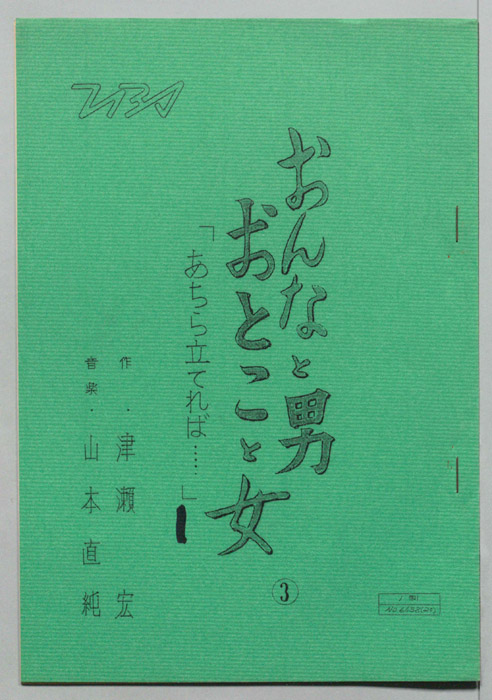 TBS
おんなと男
おとこと女
「あちら立てれば……」
作・津瀬宏
音楽・山本直純
③